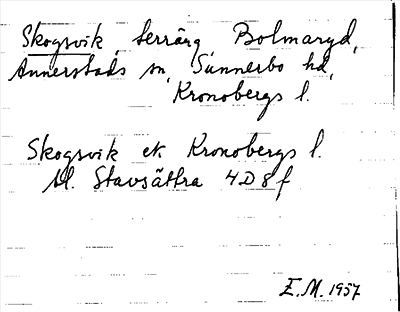 Skogsvik, terräng, Bolmaryd,
Annerstads sn, Sunnerbo hd,
Kronobergs l.
Skogsvik ek. Kronobergs l.
bl. Stavsättra 4D8f
E.M. 1957